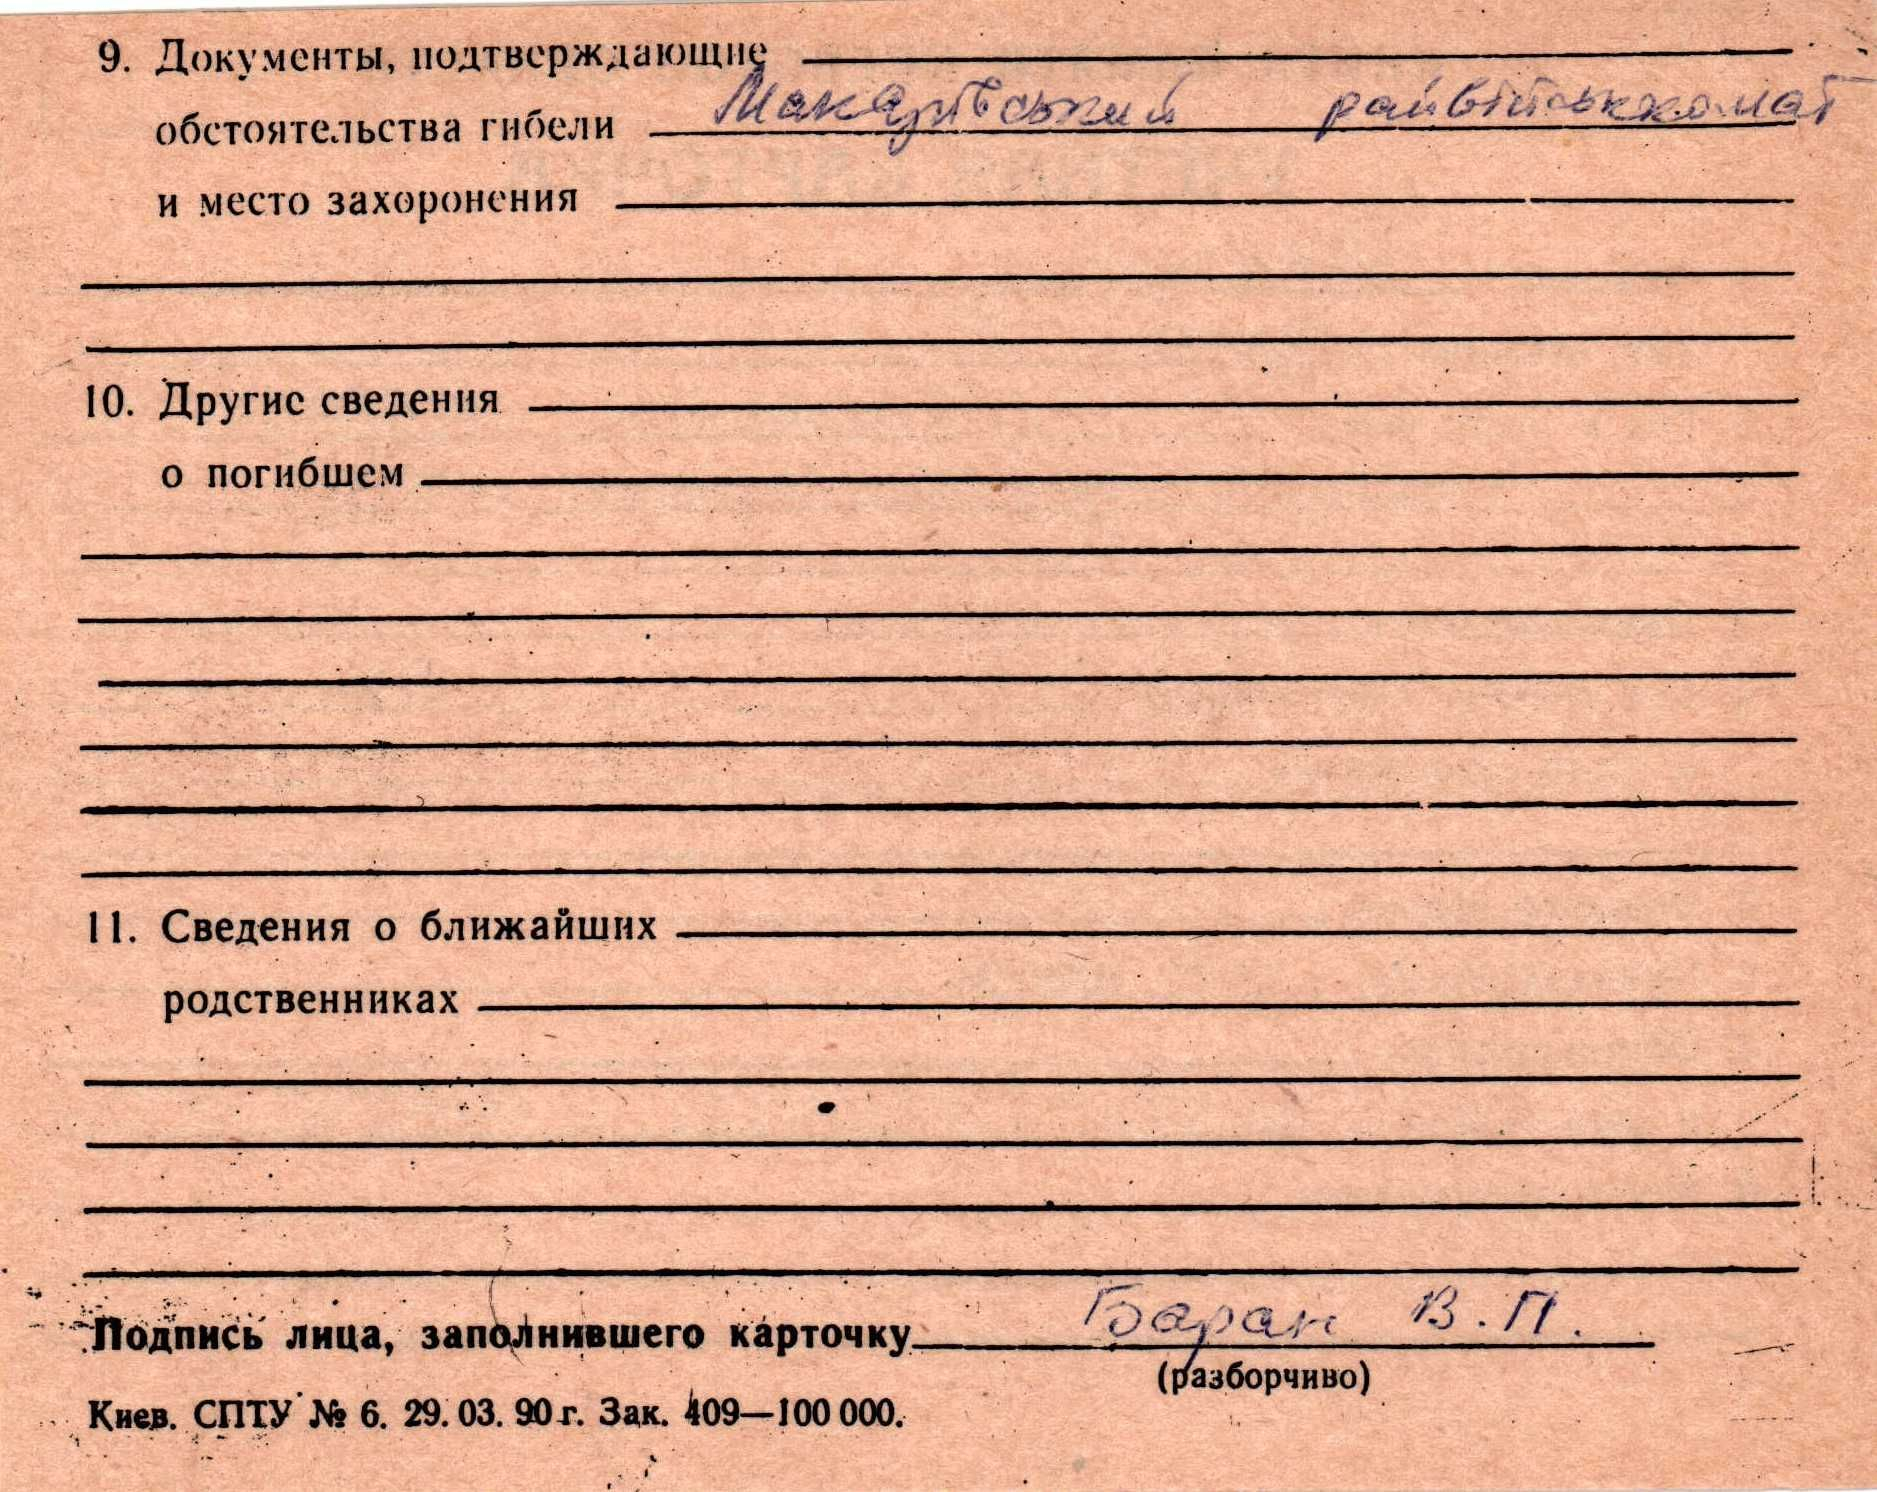 9. Документы, подтверждающие
обстоятельства гибели Макарівський райвійськкомат
и место захоронения
10. Другие сведения
о погибшем
11. Сведения о ближайших
родственниках
Подпись лица, заполнившего карточку Баран В. П.
(разборчиво)
Киев. СПТУ № 6. 29.03.90 г. Зак. 409—100 000.